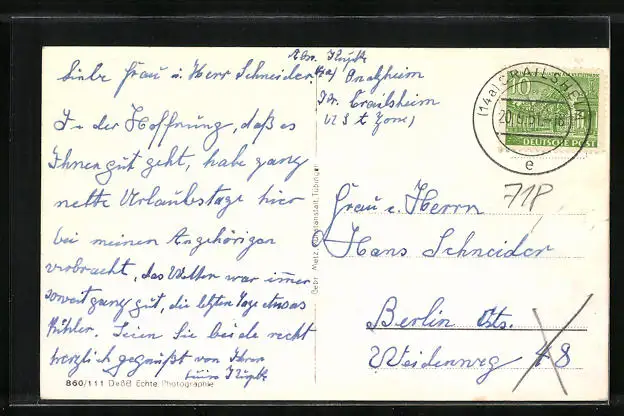 Liebe Frau u. Herr Schneider.
In der Hoffnung, daß es
Ihnen gut geht, habe ganz
nette Urlaubstage hier
bei meinen Angehörigen
verbracht, das Wetter war immer
soweit ganz gut, die letzten Tage etwas
kühler. Seien Sie beide recht
herzlich gegrüßt von Ihrer
860/111 DeBB Echte Photographie
Abs.
Onolzheim
Kr. Crailsheim
US t Zone)
Gebr. Metz, Kunstanstalt, Tübingen
(14a) CRAILSHEIM
e
10
DEUTSCHE POST
71P
Frau u. Herrn
Hans Schneider
Berlin
Weidenweg 48